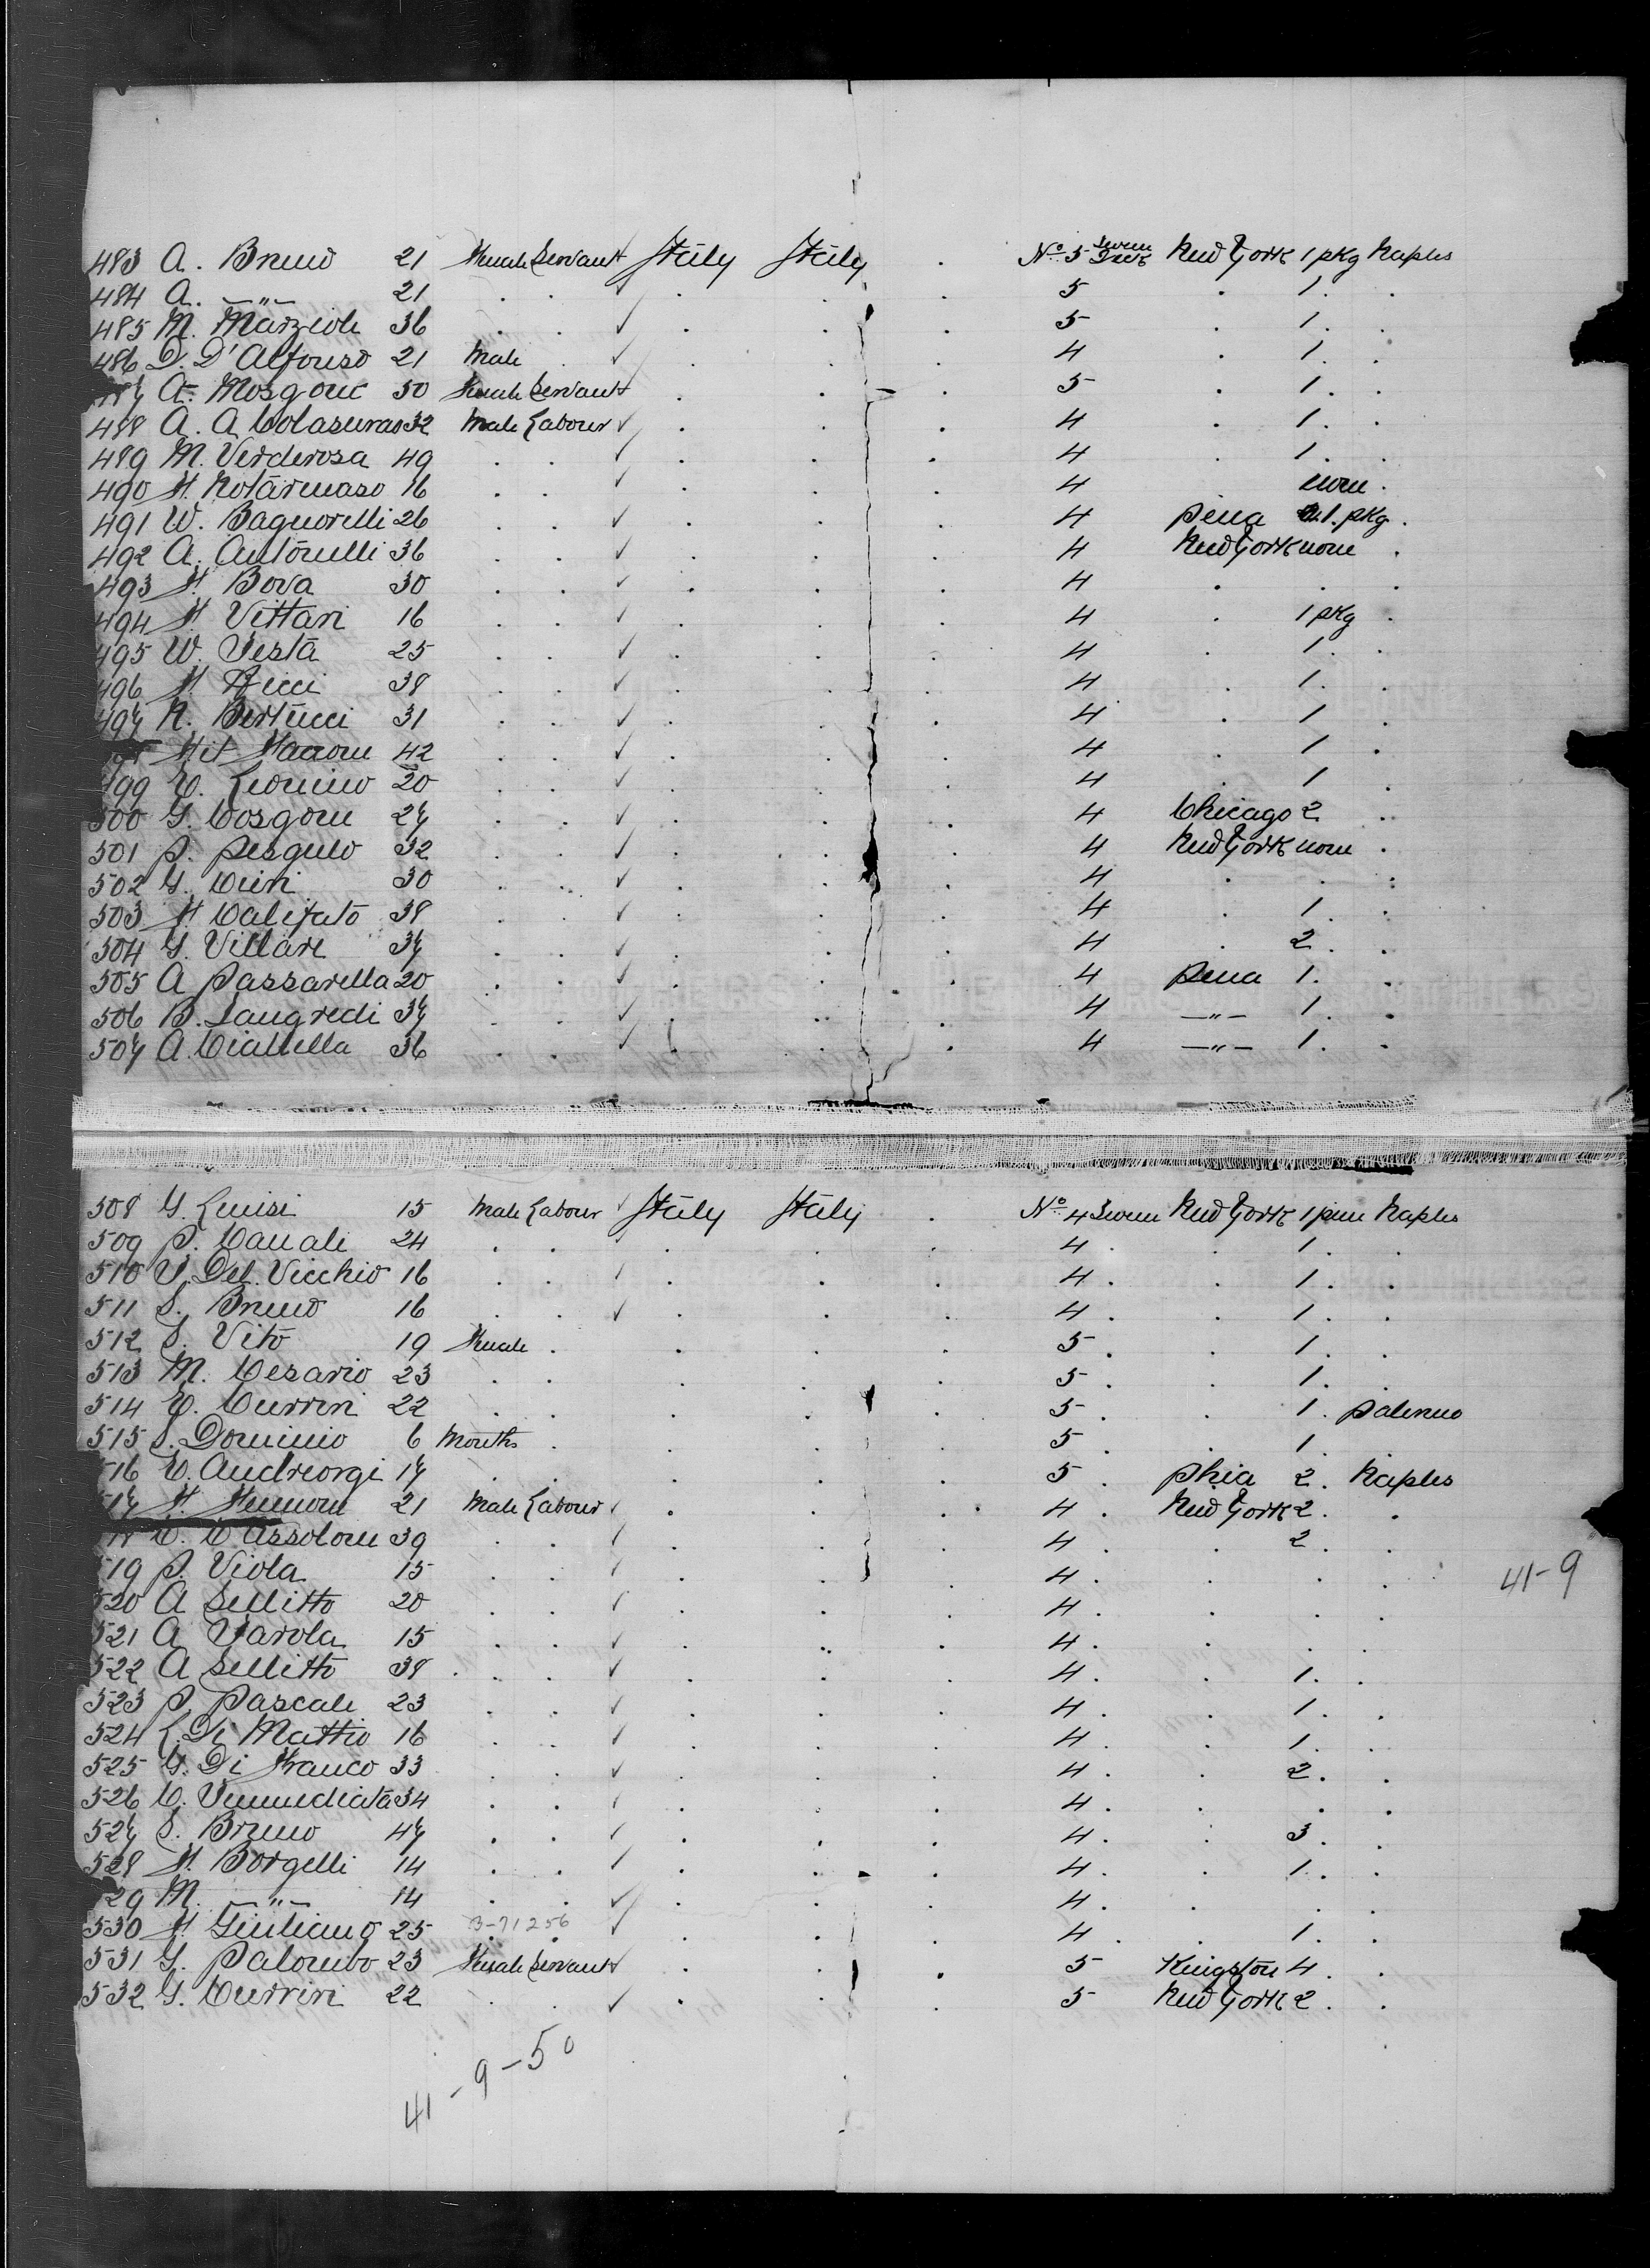 483 A. Bruno 21 Female Servant Italy Italy . No 5 Tween Deck New York 1 pkg Naples
484 A. —"— 21 . . . . 5 . 1 . .
485 M. Marzioli 36 . . . . 5 . 1 . .
486 D. D'Alfonso 21 Male . . 4 . 1 . .
A. Mosgone 50 Female Servant . . 5 . 1 . .
488 A. A Colasurao 32 Male Labour . . 4 . 1 . .
489 M. Verderosa 49 . . . . 4 . 1 . .
490 F. Notarmaso 16 . . . . 4 none .
491 W. Bagnorelli 26 . . . . 4 Pena 1 . pkg .
492 A. Antonelli 36 . . . . 4 New York none .
493 F. Bova 30 . . . . 4 . . .
494 F. Vittari 16 . . . . 4 . 1 pkg .
495 W. Testa 25 . . . . 4 . 1 . .
496 F. Ricci 38 . . . . 4 . 1 . .
497 N. Bertucci 31 . . . . 4 . 1 .
42 . . . . 4 . 1 .
499 E. Leonino 20 . . . . 4 . 1 .
500 G. Cosgone 27 . . . . 4 Chicago 2 .
501 P. 32 . . . . 4 New York none .
502 G. 30 . . . . 4 . . .
503 F. Califato 38 . . . . 4 . 1 . .
504 G. Villare 37 . . . . 4 . 2 . .
505 A Passarella 20 . . . . 4 Pena 1 . .
506 B. Langredi 37 . . . . 4 —"— 1 . .
507 A. 36 . . . . 4 —"— 1 . .
508 G. Luisi 15 Male Labour Italy Italy . No 4 Tween New York 1 Naples
509 P. Canali 24 . . . . 4 . . 1 . .
510 V. Del Vicchio 16 . . . . 4 . . 1 . .
511 S. Bruno 16 . . . . 4 . . 1 . .
512 S. Vito 19 Female . . . 5 . . 1 . .
513 M. Cesario 23 . . . . 5 . . 1 . .
514 E. Currin 22 . . . . 5 . . 1 . Palermo
515 S. Dominio 6 Months . . . 5 . . 1 .
516 E. Andreorgi 17 . . . . 5 . Phia 2 . Naples
21 Male Labour . . 4 . New York 2 . .
C. Cassolone 39 . . . . 4 . . 2 . .
519 P. Viola 15 . . . . 4 . . . .
520 A Sellitto 20 . . . . 4 . . . .
521 A Varola 15 . . . . 4 . . . .
522 A Sellitto 38 . . . . 4 . . 1 . .
523 P. Pascale 23 . . . . 4 . . 1 . .
524 L. Di Mattio 16 . . . . 4 . . 1 . .
525 G. Di Franco 33 . . . . 4 . . 2 . .
526 C. 34 . . . . 4 . . . .
527 S. Bruno 47 . . . . 4 . . 3 . .
528 F. Borgelli 14 . . . . 4 . . 1 . .
529 M. —"— 14 . . . . 4 . . . .
530 F. Giuliano 25 3-71256 . . 4 . . 1 . .
531 G. Palombo 23 Female Servant . . 5 Kingston 4 . .
532 G. Currin 22 . . . . 5 New York 2 . .
41-9
41-9-50